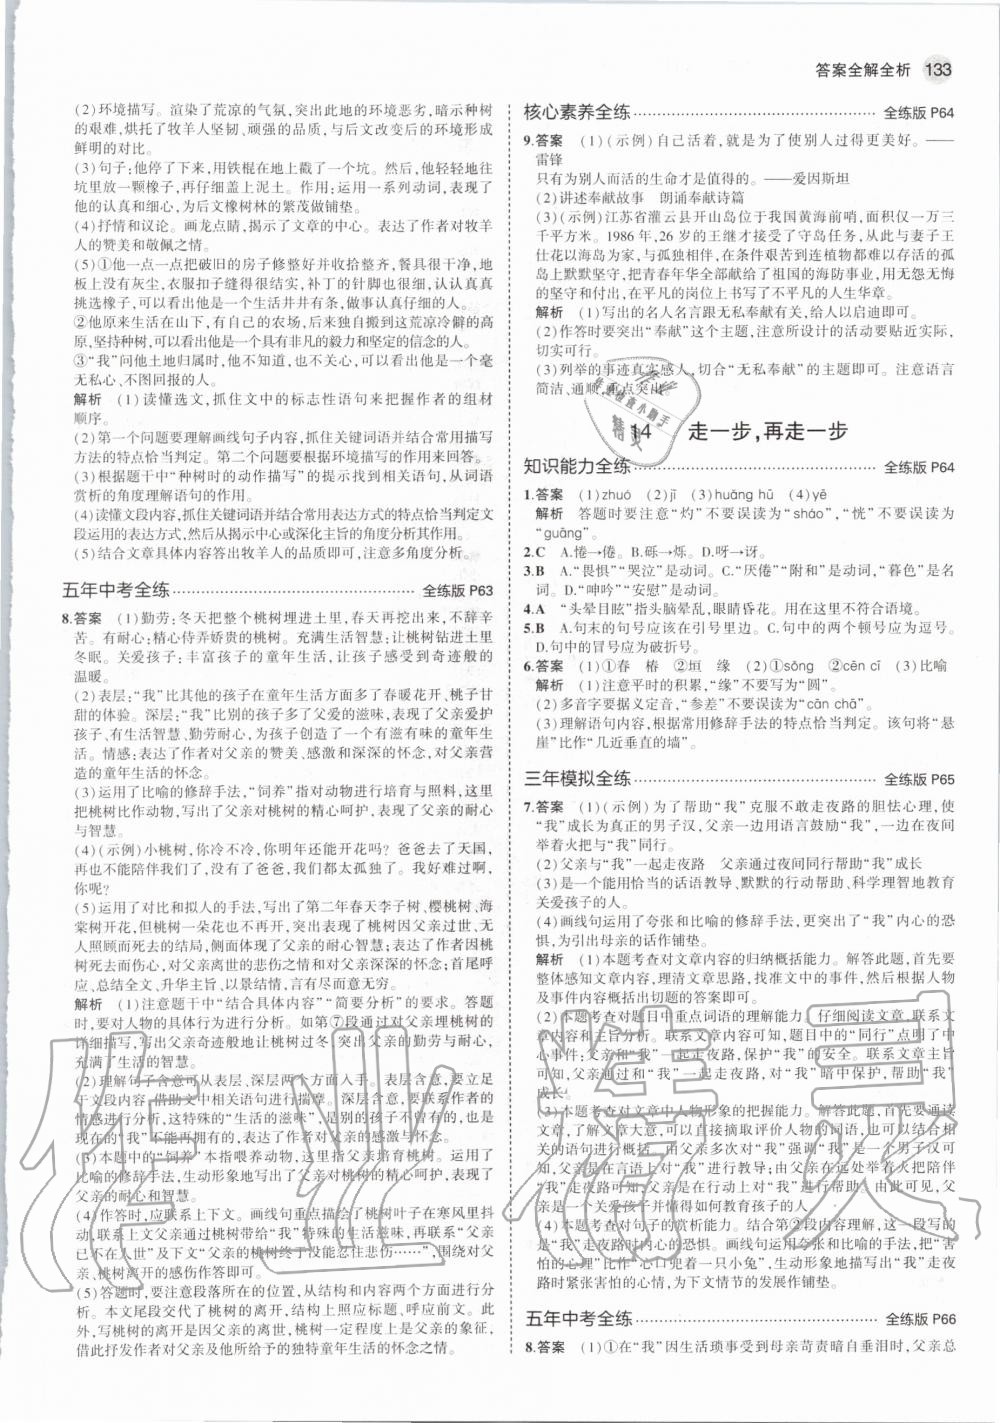 答案全解全析 133
(2)环境描写。渲染了荒凉的气氛,突出此地的环境恶劣,暗示种树
的艰难,烘托了牧羊人坚韧、顽强的品质,与后文改变后的环境形成
鲜明的对比。
(3)句子:他停了下来,用铁棍在地上戳了一个坑。然后,他轻轻地往
坑里放一颗橡子,再仔细盖上泥土。作用:运用一系列动词,表现了
他的认真和细心,为后文橡树林的繁茂做铺垫。
(4)抒情和议论。画龙点睛,揭示了文章的中心。表达了作者对牧羊
人的赞美和敬佩之情。
(5)①他一点一点把破旧的房子修整好并收拾整齐,餐具干干净净,地
板上没有灰尘,衣服扣子缝得结结实实,补丁的针脚也很细。认认真真
挑选橡子,可以看出他是一个生活井井有条,做事认真仔细的人。
②他原来生活在山下,有自己的农场,后来独自搬到这荒凉冷僻的高
原,坚持种树,可以看出他是一个具有非凡的毅力和坚定的信念的人。
③“我”问他土地归属时,他不知道,也不关心,可以看出他是一个毫
无私心、不图回报的人。
解析 (1)读懂选文,抓住文中的标志性语句来把握作者的组材
顺序。
(2)第一个问题要理解画线句子内容,抓住关键词语并结合常用描写
方法的特点恰当判定。第二个问题要根据环境描写的作用来回答。
(3)根据题干中“种树时的动作描写”的提示找到相关语句,从词语
赏析的角度理解语句的作用。
(4)读懂文段内容,抓住关键词语并结合常用表达方式的特点恰当判定文
段运用的表达方式,然后从揭示中心或深化主旨的角度分析其作用。
(5)结合文章具体内容答出牧羊人的品质即可,注意多角度分析。
五年中考全练 全练版 P63
8.答案 (1)勤劳:冬天把整个桃树埋进土里,春天再挖出来,不辞辛
苦。有耐心:精心侍弄娇贵的桃树。充满生活智慧:让桃树钻进土里
冬眠。关爱孩子:丰富孩子的童年生活,让孩子感受到奇迹般的
温暖。
(2)表层:“我”比其他的孩子在童年生活里多了春暖花开、桃子甘
甜的体验。深层:“我”比别的孩子多了父爱的滋味,表现了父亲爱护
孩子、有生活智慧、勤劳能干,为孩子创造了一个有滋有味的童年生
活。情感:表达了作者对父亲的赞美、感激和深深的怀念,对父亲营
造的童年生活的怀念。
(3)运用了比喻的修辞手法,“饲养”指对动物进行培育与照料,这里
把桃树比作动物,写出了父亲对桃树的精心呵护,表现了父亲的耐心
与智慧。
(4)(示例)小桃树,你冷不冷,你明年还能开花吗? 爸爸去了天国,
再也不能陪伴我们了,没有了爸爸,我们都太孤独了。我好难过啊,
你呢?
(5)运用了对比和拟人的手法,写出了第二年春天李子树、樱桃树、海
棠树开花,但桃树一朵花也不再开,突出表现了桃树因父亲过世、无
人照顾而死去的结局,侧面体现了父亲的耐心智慧;表达了作者因桃
树死去而伤心,对父亲离世的悲伤之情和对父亲深深的怀念;首尾呼
应、总结全文、升华主旨、以景结情,言有尽而意无穷。
解析 (1)注意题干中“结合具体内容”“简要分析”的要求。答题
时,要对人物的具体行为进行分析。如第⑦段通过对父亲埋桃树的
详细描写,写出父亲奇迹般地让桃树过冬,突出父亲的勤劳与耐心,
充满了生活的智慧。
(2)理解句子含意可从表层、深层两个方面入手。表层含意,要立足
于文段内容,借助文中相关语句进行描写。深层含意,要联系作者的
情感进行分析,这特殊的“生活的滋味”,是别的孩子不曾有的,也是
现在的“我”不能再拥有的,表达了作者对父亲的感激与怀念。
(3)本题中的“饲养”本指喂养动物,这里指父亲培育桃树。运用了
比喻的修辞手法,生动地写出了父亲对桃树的精心呵护,表现了
父亲的耐心和智慧。
(4)作答时,应联系上下文。画线句重点描绘了桃树叶子在寒风里抖
动,联系上文父亲通过桃树带给“我”特殊的生活滋味,再联系“父亲
已不在人世”及下文“父亲的桃树终于没能忍住悲伤……”,围绕对父
亲、桃树离开的感伤作答即可。
(5)答题时,要注意段落所在的位置,从结构和内容两个方面进行分
析。本文尾段交代了桃树的离开,结构上照应标题、呼应前文。此
外,写桃树的离开是因父亲的离开,桃树一定程度上是父亲的象征,
借此抒发作者对父亲及他所给予的独特童年生活的怀念。
核心素养全练 全练版 P64
9.答案 (1)(示例)自己活着,就是为了使别人过得更美好。——
雷锋
只有为别人而活的生命才是值得的。——爱因斯坦
(2)讲述奉献故事 朗诵奉献诗篇
(3)(示例)江苏省灌云县开山岛位于我国黄海前哨,面积仅一万三
千平方米。1986年,26岁的王继才接受了守岛任务,从此与妻子王
仕花以海岛为家,与孤独相伴,在条件艰苦到连植物都难以存活的孤
岛上默默坚守,把青春年华全部献给了祖国的海防事业,用无怨无悔
的坚守和付出,在平凡的岗位上书写了不平凡的人生华章。
解析 (1)写出的名人名言跟无私奉献有关,给人以启迪即可。
(2)作答时要突出“奉献”这个主题,注意所设计的活动要贴近实际,
切实可行。
(3)列举的事迹真实感人,切合“无私奉献”的主题即可。注意语言
简洁、通顺,重点突出。
14 走一步,再走一步
知识能力全练 全练版 P64
1.答案 (1)zhuó (2)jī (3)huǎng hū (4)yē
解析 答题时要注意“灼”不要误读为“sháo”,“恍”不要误读为
“guāng”。
2.C A.惓→倦。B.砾→烁。D.玡→讶。
3.B A.“畏惧”“哭泣”是动词。C.“厌倦”“附和”是动词,“暮色”是名
词。D.“呻吟”“俯瞰”是动词。
4.A “头晕目眩”指头脑晕乱,眼睛昏花。用在这里不符合语境。
5.B A.句末的句号应该在引号里边。C.句中的两个顿号应为逗号。
D.句中的冒号应为破折号。
6.答案 (1)①春 椿 ②垣 缘 (2)①sǒng ②cēn cī (3)比喻
解析 (1)注意平时的积累,“缘”不要写为“圆”。
(2)多音字要据义定音,“参差”不要误读为“cān chā”。
(3)理解语句内容,根据常用修辞手法的特点恰当判定。该句将“悬
崖”比作“几近垂直的墙”。
三年模拟全练 全练版 P65
7.答案 (1)(示例)为了帮助“我”克服不敢走夜路的胆怯心理,使
“我”成长为真正的男子汉,父亲一边用语言鼓励“我”,一边在夜间
举着火把与“我”同行。
(2)父亲与“我”一起走夜路 父亲通过夜间同行帮助“我”成长
(3)是一个能用恰当的话语教导、默默的行动帮助、科学理智地教育
关爱孩子的人。
(4)画线句运用了夸张和比喻的修辞手法,更突出了“我”内心的恐
惧,为引出母亲的话作铺垫。
解析 (1)本题考查对文章内容的归纳概括能力。解答此题,首先要
整体感知文章内容,理清文章思路,找准文中的事件,然后根据人物
及事件内容概括出切题的答案即可。
(2)本题考查对题目中重点词语的理解能力。仔细阅读文章,联系文
章内容和主旨分析。联系文章内容可知,题目中的“同行”点明了中
心事件:父亲和“我”一起走夜路,保护“我”的安全。联系文章主旨
可知,父亲通过和“我”一起走夜路,对“我”暗中保护,帮助“我”
成长。
(3)本题考查对文章中人物形象的把握能力。解答此题,首先要通读
文章,了解文章大意,可以直接摘取评价人物的词语,也可以结合相
关的语句进行概括。由父亲多次对“我”强调“我”是一个男子汉可
知,父亲是在言语上对“我”进行教导;由父亲在远处举着火把陪伴
“我”走夜路可知,父亲是在行动上对“我”进行帮助。由此可见,父
亲是一个善于引导并懂得如何教育孩子的人。
(4)本题考查对句子的赏析能力。结合第②段内容理解,这一段写的
是“我”走夜路时内心的恐惧。画线句运用夸张和比喻的手法,把“害
怕的心理”比作“心口兜着一只小兔”,生动形象地写出了“我”走夜
路时紧张害怕的心情,为下文情节的发展作铺垫。
五年中考全练 全练版 P66
8.答案 (1)①在“我”因生活琐事受到母亲苛责暗自垂泪时,父亲总